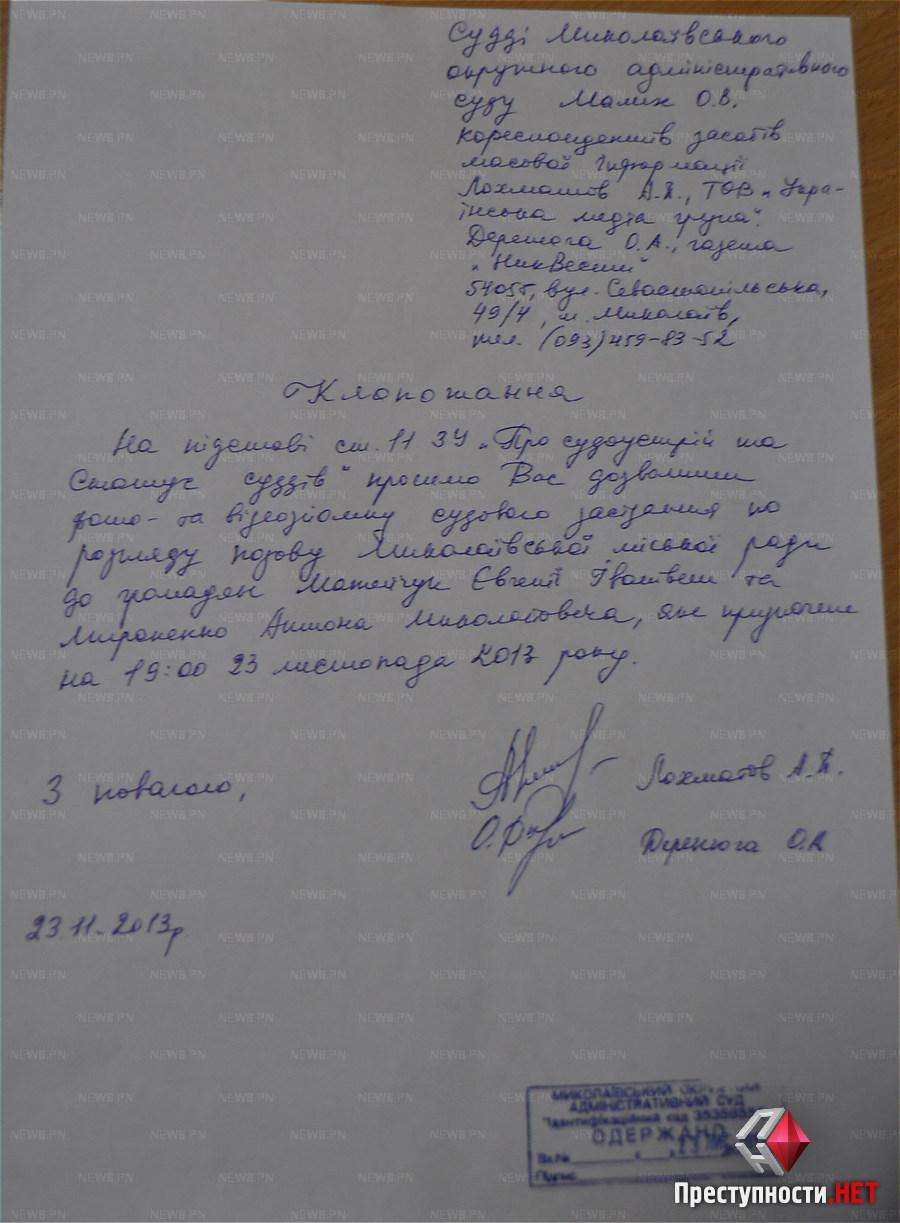 Судді Миколаївського
окружного адміністративного
суду Малих О.В.
кореспондентів засобів
масової інформації
Лохматов А.П., ТОВ „Укра-
їнська медіа група".
Деренюга О.А., газета
„НикВести"
54055, вул. Севастопільська,
49/4, м. Миколаїв,
тел. (093) 459-83-52
Клопотання
На підставі ст. 11 ЗУ „Про судоустрій та
статус суддів" просимо Вас дозволити
фото- та відеозйомку судового засідання по
розгляду позову Миколаївської міської ради
до громадян Матейчук Євгенії Іванівни та
Мироненко Антона Миколайовича, яке призначене
на 19:00 23 листопада 2013 року.
З повагою,
Лохматов А.П.
Деренюга О.А
23.11.2013р
МИКОЛАЇВСЬКИЙ
АДМІНІСТРАТИВНИЙ СУД
Ідентифікаційний код
ОДЕРЖАНО
Вх.№
Підпис
Преступности.НЕТ
NEWS.PN